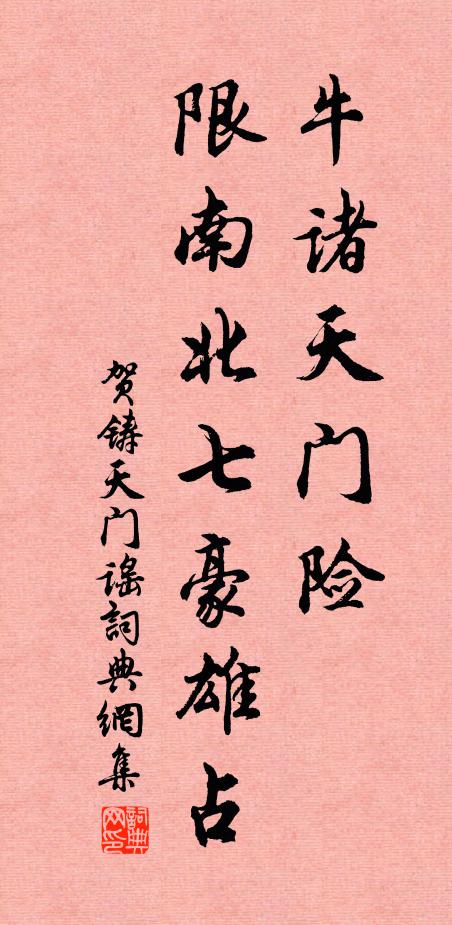 牛诸天门险
限南北七豪雄占
贺铸天门谣詞典網集
詞典网印